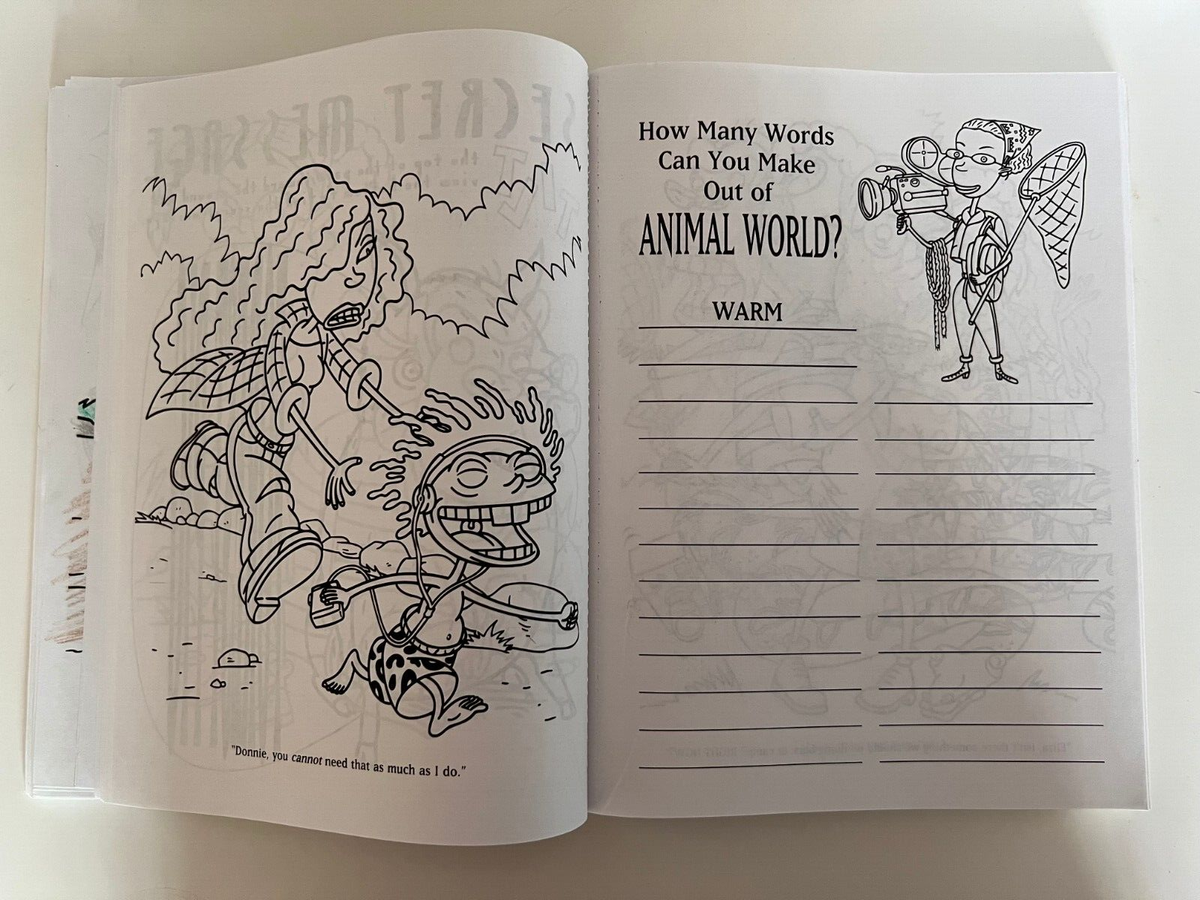 "Donnie, you cannot need that as much as I do."
How Many Words
Can You Make
Out of
ANIMAL WORLD?
WARM
SECRET MESSAGE